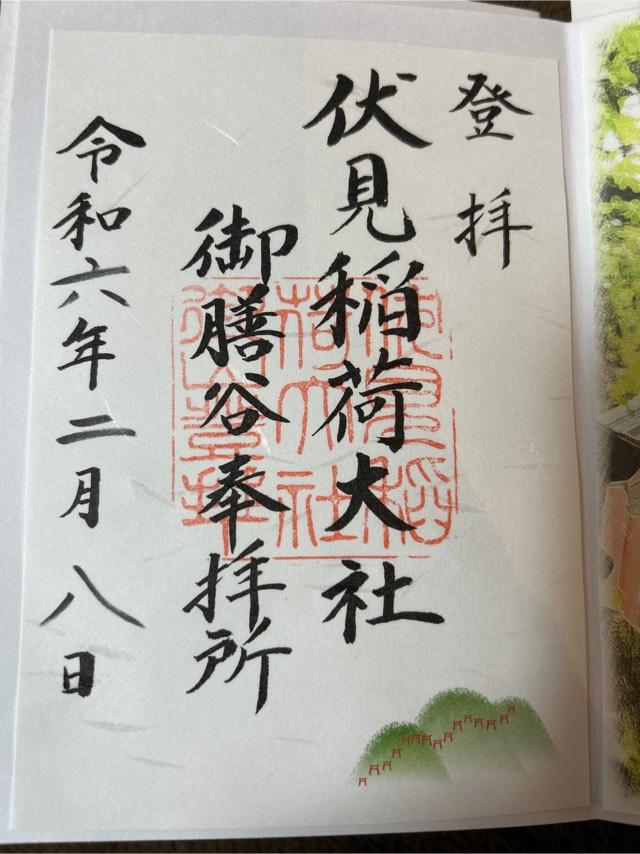 登拝
伏見稲荷大社
御膳谷奉拝所
令和六年二月八日